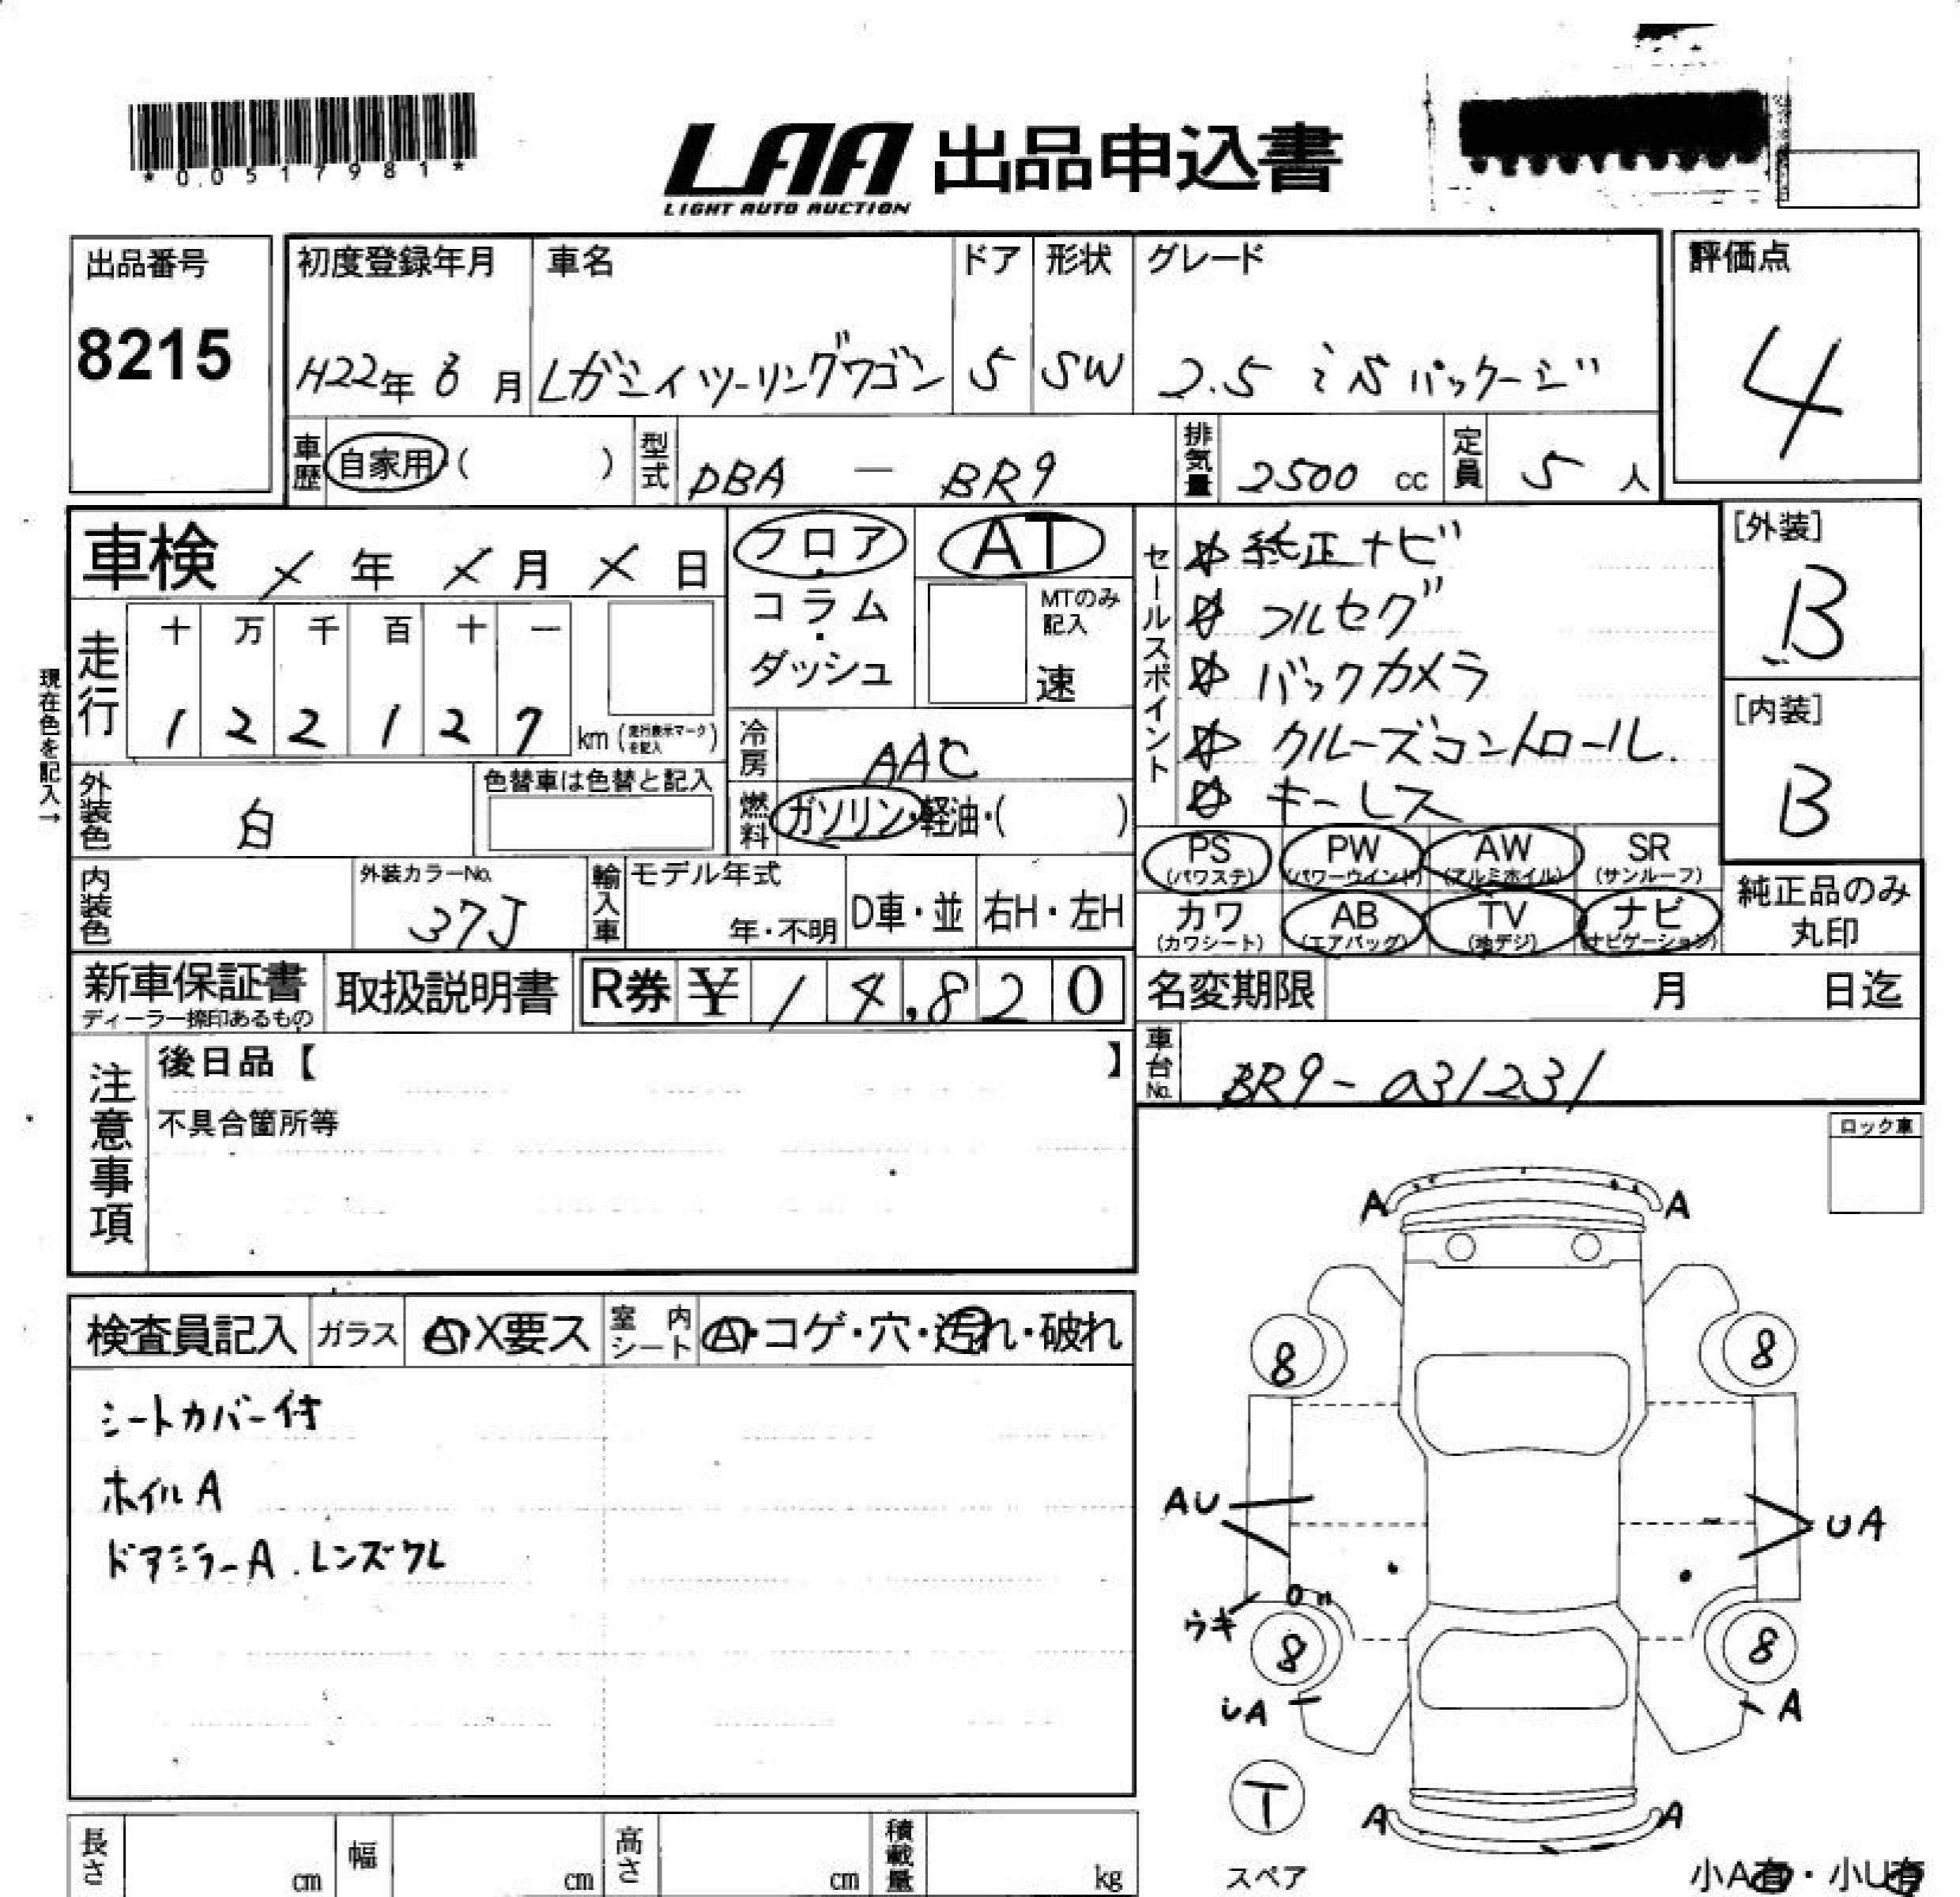 *0.0517981*
LAA 出品申込書
LIGHT AUTO AUCTION
出品番号 初度登録年月 車名 ドア 形状 グレード 評価点
8215 H22年 8月 レガシイツーリングワゴン 5 SW 2.5 i Sパッケージ 4
車歴 自家用・( ) 型式 DBA — BR9 排気量 2500 cc 定員 5 人
車検 年 月 日 フロア・コラム・ダッシュ AT
MTのみ記入 速
走行 十 万 千 百 十 一
1 2 2 1 2 7 km (走行表示マークを記入)
現在色を記入→
冷房 AAC
外装色 白 色替車は色替と記入
燃料 ガソリン・軽油・( )
セールスポイント
☆ 純正ナビ
☆ フルセグ
☆ バックカメラ
☆ クルーズコントロール
☆ キーレス
[外装]
B
[内装]
B
PS (パワステ) PW (パワーウインド) AW (アルミホイル) SR (サンルーフ)
カワ (カワシート) AB (エアバッグ) TV (地デジ) ナビ (ナビゲーション)
純正品のみ丸印
内装色 外装カラーNo. 37J 輸入車 モデル年式 年・不明 D車・並 右H・左H
新車保証書 ディーラー捺印あるもの 取扱説明書 R券 ¥ 1 4,8 2 0 名変期限 月 日迄
車台No. BR9-031231
注意事項
後日品【 】
不具合箇所等
ロック車
検査員記入 ガラス A・X要ス 室内シート A・コゲ・穴・汚れ・破れ
シートカバー付
ホイルA
ドアミラーA.レンズクレ
A A
8 8
AU UA
ウキ
8 8
UA A
T
スペア
A A
小A有・小U有
長さ cm 幅 cm 高さ cm 積載量 kg